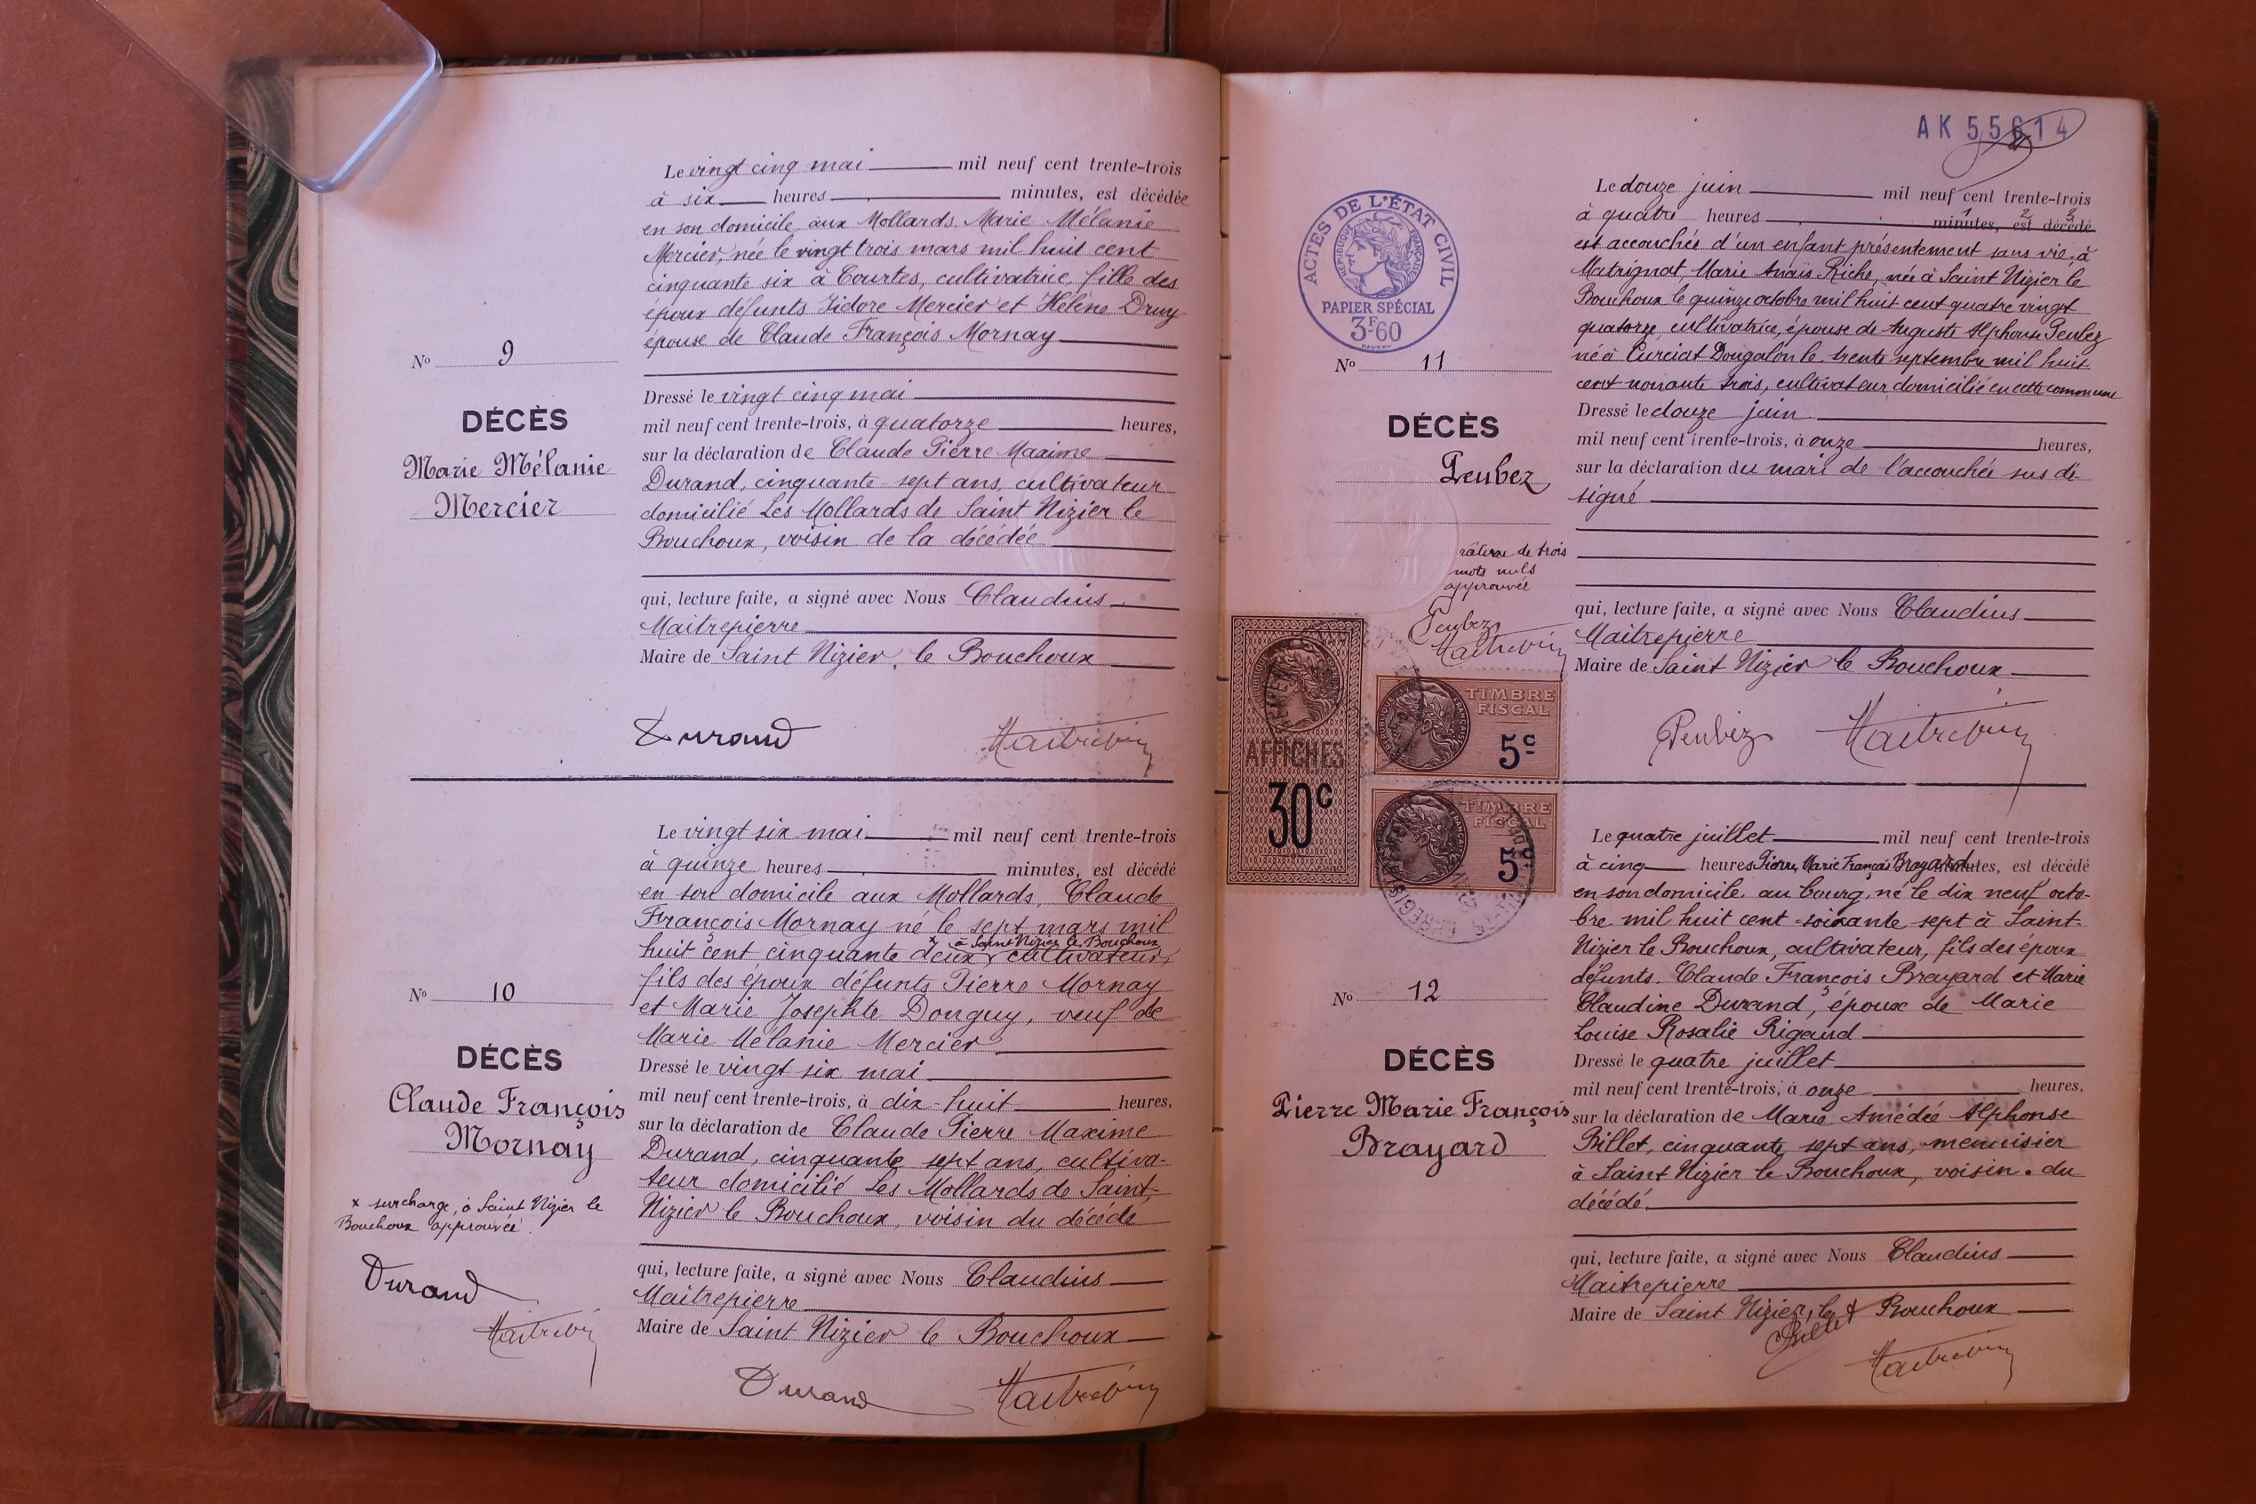 Le vingt cinq mai mil neuf cent trente-trois
à six heures minutes, est décédée
en son domicile aux Mollards Marie Mélanie
Mercier, née le vingt trois mars mil huit cent
cinquante six à Courtes, cultivatrice, fille des
époux défunts Isidore Mercier et Hélène Druy
épouse de Claude François Mornay
No 9
DÉCÈS
Marie Mélanie
Mercier
Dressé le vingt cinq mai
mil neuf cent trente-trois, à quatorze heures,
sur la déclaration de Claude Pierre Maxime
Durand, cinquante sept ans, cultivateur
domicilié Les Mollards de Saint Nizier le
Bouchoux, voisin de la décédée
qui, lecture faite, a signé avec Nous Claudius
Maitrepierre
Maire de Saint Nizier le Bouchoux
Durand Maitrepierre
Le vingt six mai mil neuf cent trente-trois
à quinze heures minutes, est décédé
en son domicile aux Mollards, Claude
François Mornay né le sept mars mil
x à Saint Nizier le Bouchoux
huit cent cinquante deux cultivateur,
fils des époux défunts Pierre Mornay
et Marie Josephte Donguy, veuf de
Marie Mélanie Mercier
No 10
DÉCÈS
Claude François
Mornay
x surcharge, à Saint Nizier le
Bouchoux approuvée.
Durand
Maitrepierre
Dressé le vingt six mai
mil neuf cent trente-trois, à dix-huit heures,
sur la déclaration de Claude Pierre Maxime
Durand, cinquante sept ans, cultiva-
teur domicilié Les Mollards de Saint-
Nizier le Bouchoux, voisin du décédé
qui, lecture faite, a signé avec Nous Claudius
Maitrepierre
Maire de Saint Nizier le Bouchoux
Durand Maitrepierre
AK 55614
ACTES DE L'ÉTAT CIVIL
RÉPUBLIQUE FRANÇAISE
PAPIER SPÉCIAL
3F60
Le douze juin mil neuf cent trente-trois
à quatre heures minutes, est décédé
1 2 3
est accouchée d'un enfant présentement sans vie, à
Matrignat, Marie Anaïs Riche, née à Saint Nizier le
Bouchoux le quinze octobre mil huit cent quatre vingt
quatorze, cultivatrice, épouse de Auguste Alphonse Peubez
né à Curciat Dongalon le trente septembre mil huit
cent nonante trois, cultivateur domicilié en cette commune
No 11
DÉCÈS
Peubez
rature de trois
mots nuls
approuvée
Peubez
Maitrepierre
Dressé le douze juin
mil neuf cent trente-trois, à onze heures,
sur la déclaration du mari de l'accouchée sus dé-
signé
qui, lecture faite, a signé avec Nous Claudius
Maitrepierre
Maire de Saint Nizier le Bouchoux
Peubez Maitrepierre
AFFICHES
30c
TIMBRE
FISCAL
5c
TIMBRE
FISCAL
5c
Le quatre juillet mil neuf cent trente-trois
à cinq heures Pierre Marie François Brayard minutes, est décédé
en son domicile au bourg, né le dix neuf octo-
bre mil huit cent soixante sept à Saint-
Nizier le Bouchoux, cultivateur, fils des époux
défunts Claude François Brayard et Marie
Claudine Durand, époux de Marie
Louise Rosalie Rigaud
No 12
DÉCÈS
Pierre Marie François
Brayard
Dressé le quatre juillet
mil neuf cent trente-trois, à onze heures.
sur la déclaration de Marie Amédée Alphonse
Billet, cinquante sept ans, menuisier
à Saint Nizier le Bouchoux, voisin du
décédé.
qui, lecture faite, a signé avec Nous Claudius
Maitrepierre
Maire de Saint Nizier le Bouchoux
Billet
Maitrepierre